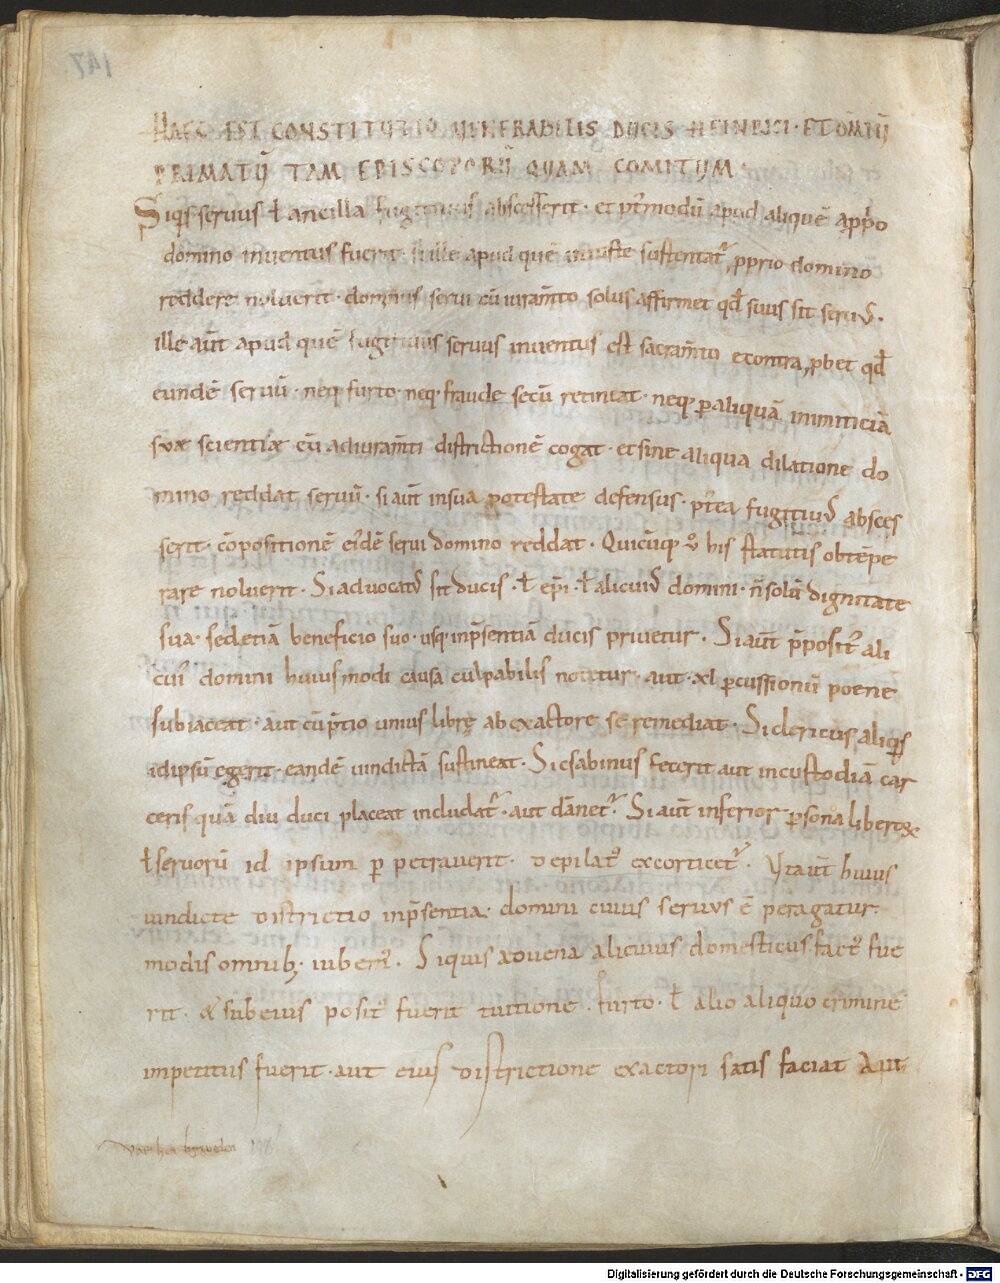 147
HAEC EST CONSTITUTIO VENERABILIS DUCIS HEINRICI · ET OMIŪ
PRIMATŪ TAM EPISCOPORŪ QUAM COMITUM ·
Siqis servus ł ancilla fugitivus abscesserit · et pt̄modū apud aliquē app̄bo
domino inventus fuerit · si ille apud quē iniuste sustentat̄, p̄prio domino
reddere noluerit · dominus servi cū iuram̄to solus affirmet qd̄ suus sit servus ·
ille aūt apud quē fugitivus servus inventus est sacram̄to econtra p̄bet qd̄
eundē servū · neq· furto · neq· fraude secū retineat · neq· p aliquā inimiciciā
suæ scientiæ cū adiuram̄ti districtionē cogat · et sine aliqua dilatione do
mino reddat servū · si aūt in sua potestate defensus · pt̄ea fugitivus absces
serit · cōpositionē eiusdē servi domino reddat · Quicūq; v̊ his statutis obtēpe
rare noluerit · Si advocatus sit ducis · ł ep̄i · ł alicuius domini · n̄ solū dignitate
sua · sed etiā beneficio suo · usq; inp̄sentiā ducis privetur · Si aūt p̄posit̉ ali
cuỉ domini huiusmodi causa culpabilis notetur · aut · xl · p̄cussionū poene
subiaceat · aut cū p̄tio unius librę ab exactore se remediat · Si clericus aliq̉s
id ipsū egerit · eandē vindictā sustineat · Si csabinus fecerit aut in custodiā car
ceris quā diu duci placeat includat̄ · aut dānet̄ · Si aūt inferior p̄sona liberoꝝ
ł servorū id ipsum p petraverit · depilat̉ excorticet̄ · Ut aūt huius
vindicte districtio inp̄sentia · domini cuius servus ē peragatur ·
modis omnib; iubem̉ · Si quis advena alicuius domesticus fact̉ fue
rit · & sub eius posit̉ fuerit tuitione · furto · ł alio aliquo crimine
impetitus fuerit · aut eius districtione exactori satis faciat Aut
146
Digitalisierung gefördert durch die Deutsche Forschungsgemeinschaft · DFG